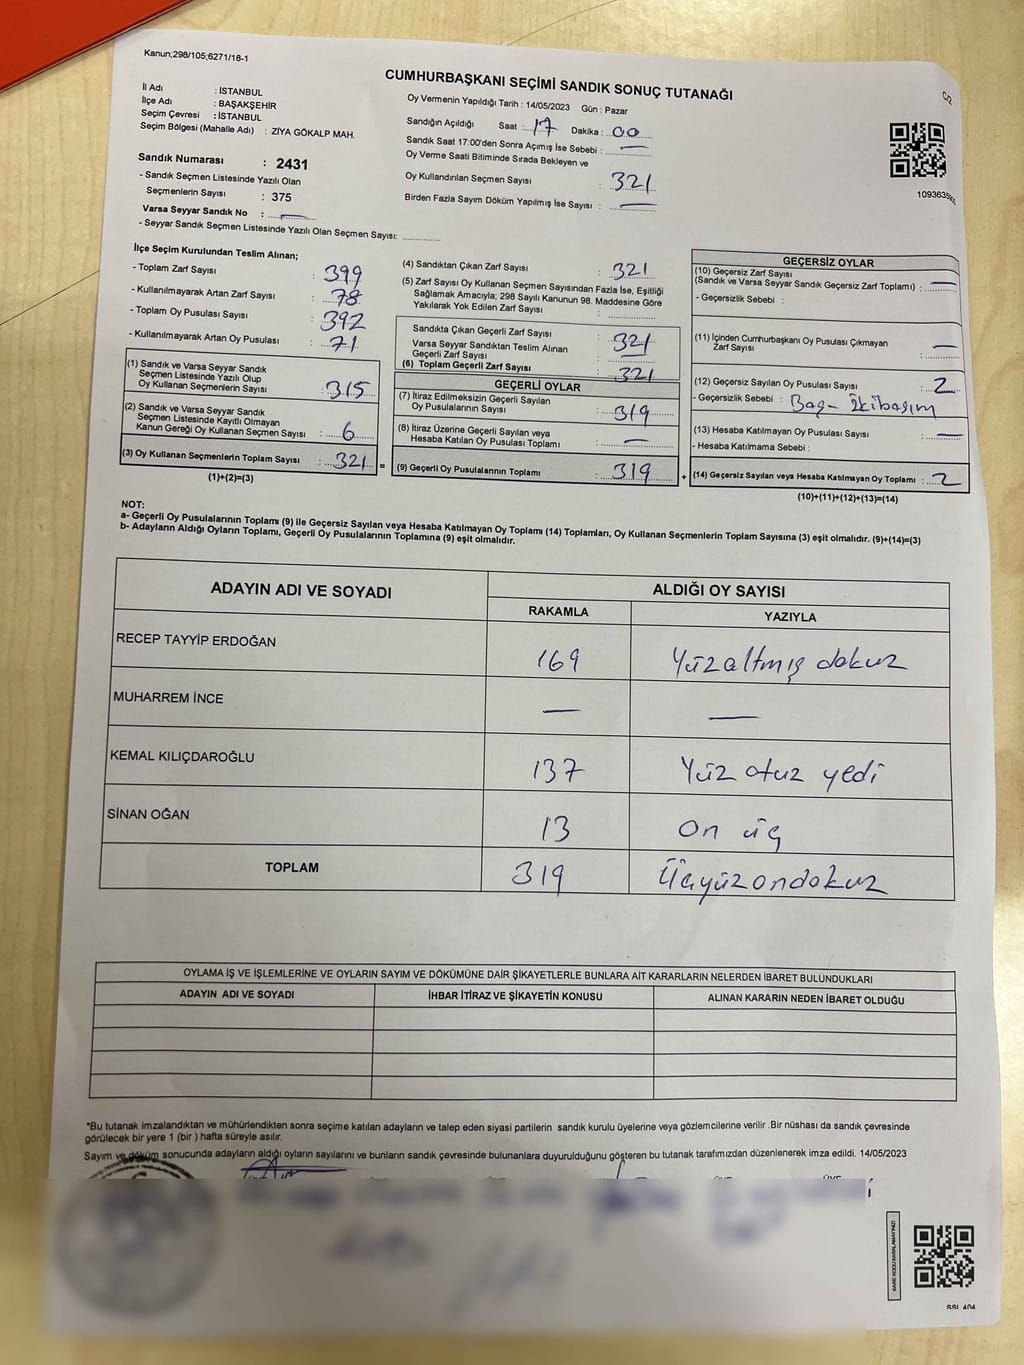 Kanun;298/105;6271/18-1
CUMHURBAŞKANI SEÇİMİ SANDIK SONUÇ TUTANAĞI
C/2
İl Adı : İSTANBUL
İlçe Adı : BAŞAKŞEHİR
Seçim Çevresi : İSTANBUL
Seçim Bölgesi (Mahalle Adı) : ZİYA GÖKALP MAH.
Sandık Numarası : 2431
- Sandık Seçmen Listesinde Yazılı Olan
Seçmenlerin Sayısı : 375
Varsa Seyyar Sandık No : —
- Seyyar Sandık Seçmen Listesinde Yazılı Olan Seçmen Sayısı:
Oy Vermenin Yapıldığı Tarih : 14/05/2023 Gün : Pazar
Sandığın Açıldığı Saat : 17 Dakika : 00
Sandık Saat 17:00'den Sonra Açımış İse Sebebi : —
Oy Verme Saati Bitiminde Sırada Bekleyen ve
Oy Kullandırılan Seçmen Sayısı : 321
Birden Fazla Sayım Döküm Yapılmış İse Sayısı : —
İlçe Seçim Kurulundan Teslim Alınan;
- Toplam Zarf Sayısı : 399
- Kullanılmayarak Artan Zarf Sayısı : 78
- Toplam Oy Pusulası Sayısı : 392
- Kullanılmayarak Artan Oy Pusulası : 71
(1) Sandık ve Varsa Seyyar Sandık
Seçmen Listesinde Yazılı Olup
Oy Kullanan Seçmenlerin Sayısı : 315
(2) Sandık ve Varsa Seyyar Sandık
Seçmen Listesinde Kayıtlı Olmayan
Kanun Gereği Oy Kullanan Seçmen Sayısı : 6
(3) Oy Kullanan Seçmenlerin Toplam Sayısı : 321
(1)+(2)=(3)
(4) Sandıktan Çıkan Zarf Sayısı : 321
(5) Zarf Sayısı Oy Kullanan Seçmen Sayısından Fazla İse, Eşitliği
Sağlamak Amacıyla; 298 Sayılı Kanunun 98. Maddesine Göre
Yakılarak Yok Edilen Zarf Sayısı :
Sandıkta Çıkan Geçerli Zarf Sayısı : 321
Varsa Seyyar Sandıktan Teslim Alınan
Geçerli Zarf Sayısı : —
(6) Toplam Geçerli Zarf Sayısı : 321
GEÇERLİ OYLAR
(7) İtiraz Edilmeksizin Geçerli Sayılan
Oy Pusulalarının Sayısı : 319
(8) İtiraz Üzerine Geçerli Sayılan veya
Hesaba Katılan Oy Pusulası Toplamı : —
(9) Geçerli Oy Pusulalarının Toplamı : 319
GEÇERSİZ OYLAR
(10) Geçersiz Zarf Sayısı
(Sandık ve Varsa Seyyar Sandık Geçersiz Zarf Toplamı) : —
- Geçersizlik Sebebi :
(11) İçinden Cumhurbaşkanı Oy Pusulası Çıkmayan
Zarf Sayısı : —
(12) Geçersiz Sayılan Oy Pusulası Sayısı : 2
- Geçersizlik Sebebi : Boş-İkibasım
(13) Hesaba Katılmayan Oy Pusulası Sayısı : —
- Hesaba Katılmama Sebebi :
(14) Geçersiz Sayılan veya Hesaba Katılmayan Oy Toplamı : 2
(10)+(11)+(12)+(13)=(14)
NOT:
a- Geçerli Oy Pusulalarının Toplamı (9) ile Geçersiz Sayılan veya Hesaba Katılmayan Oy Toplamı (14) Toplamları, Oy Kullanan Seçmenlerin Toplam Sayısına (3) eşit olmalıdır. (9)+(14)=(3)
b- Adayların Aldığı Oyların Toplamı, Geçerli Oy Pusulalarının Toplamına (9) eşit olmalıdır.
ADAYIN ADI VE SOYADI ALDIĞI OY SAYISI
RAKAMLA YAZIYLA
RECEP TAYYİP ERDOĞAN 169 Yüzaltmış dokuz
MUHARREM İNCE — —
KEMAL KILIÇDAROĞLU 137 Yüz otuz yedi
SİNAN OĞAN 13 On üç
TOPLAM 319 Üçyüzondokuz
OYLAMA İŞ VE İŞLEMLERİNE VE OYLARIN SAYIM VE DÖKÜMÜNE DAİR ŞİKAYETLERLE BUNLARA AİT KARARLARIN NELERDEN İBARET BULUNDUKLARI
ADAYIN ADI VE SOYADI İHBAR İTİRAZ VE ŞİKAYETİN KONUSU ALINAN KARARIN NEDEN İBARET OLDUĞU
*Bu tutanak imzalandıktan ve mühürlendikten sonra seçime katılan adayların ve talep eden siyasi partilerin sandık kurulu üyelerine veya gözlemcilerine verilir .Bir nüshası da sandık çevresinde
görülecek bir yere 1 (bir ) hafta süreyle asılır.
Sayım ve döküm sonucunda adayların aldığı oyların sayılarını ve bunların sandık çevresinde bulunanlara duyurulduğunu gösteren bu tutanak tarafımızdan düzenlenerek imza edildi. 14/05/2023